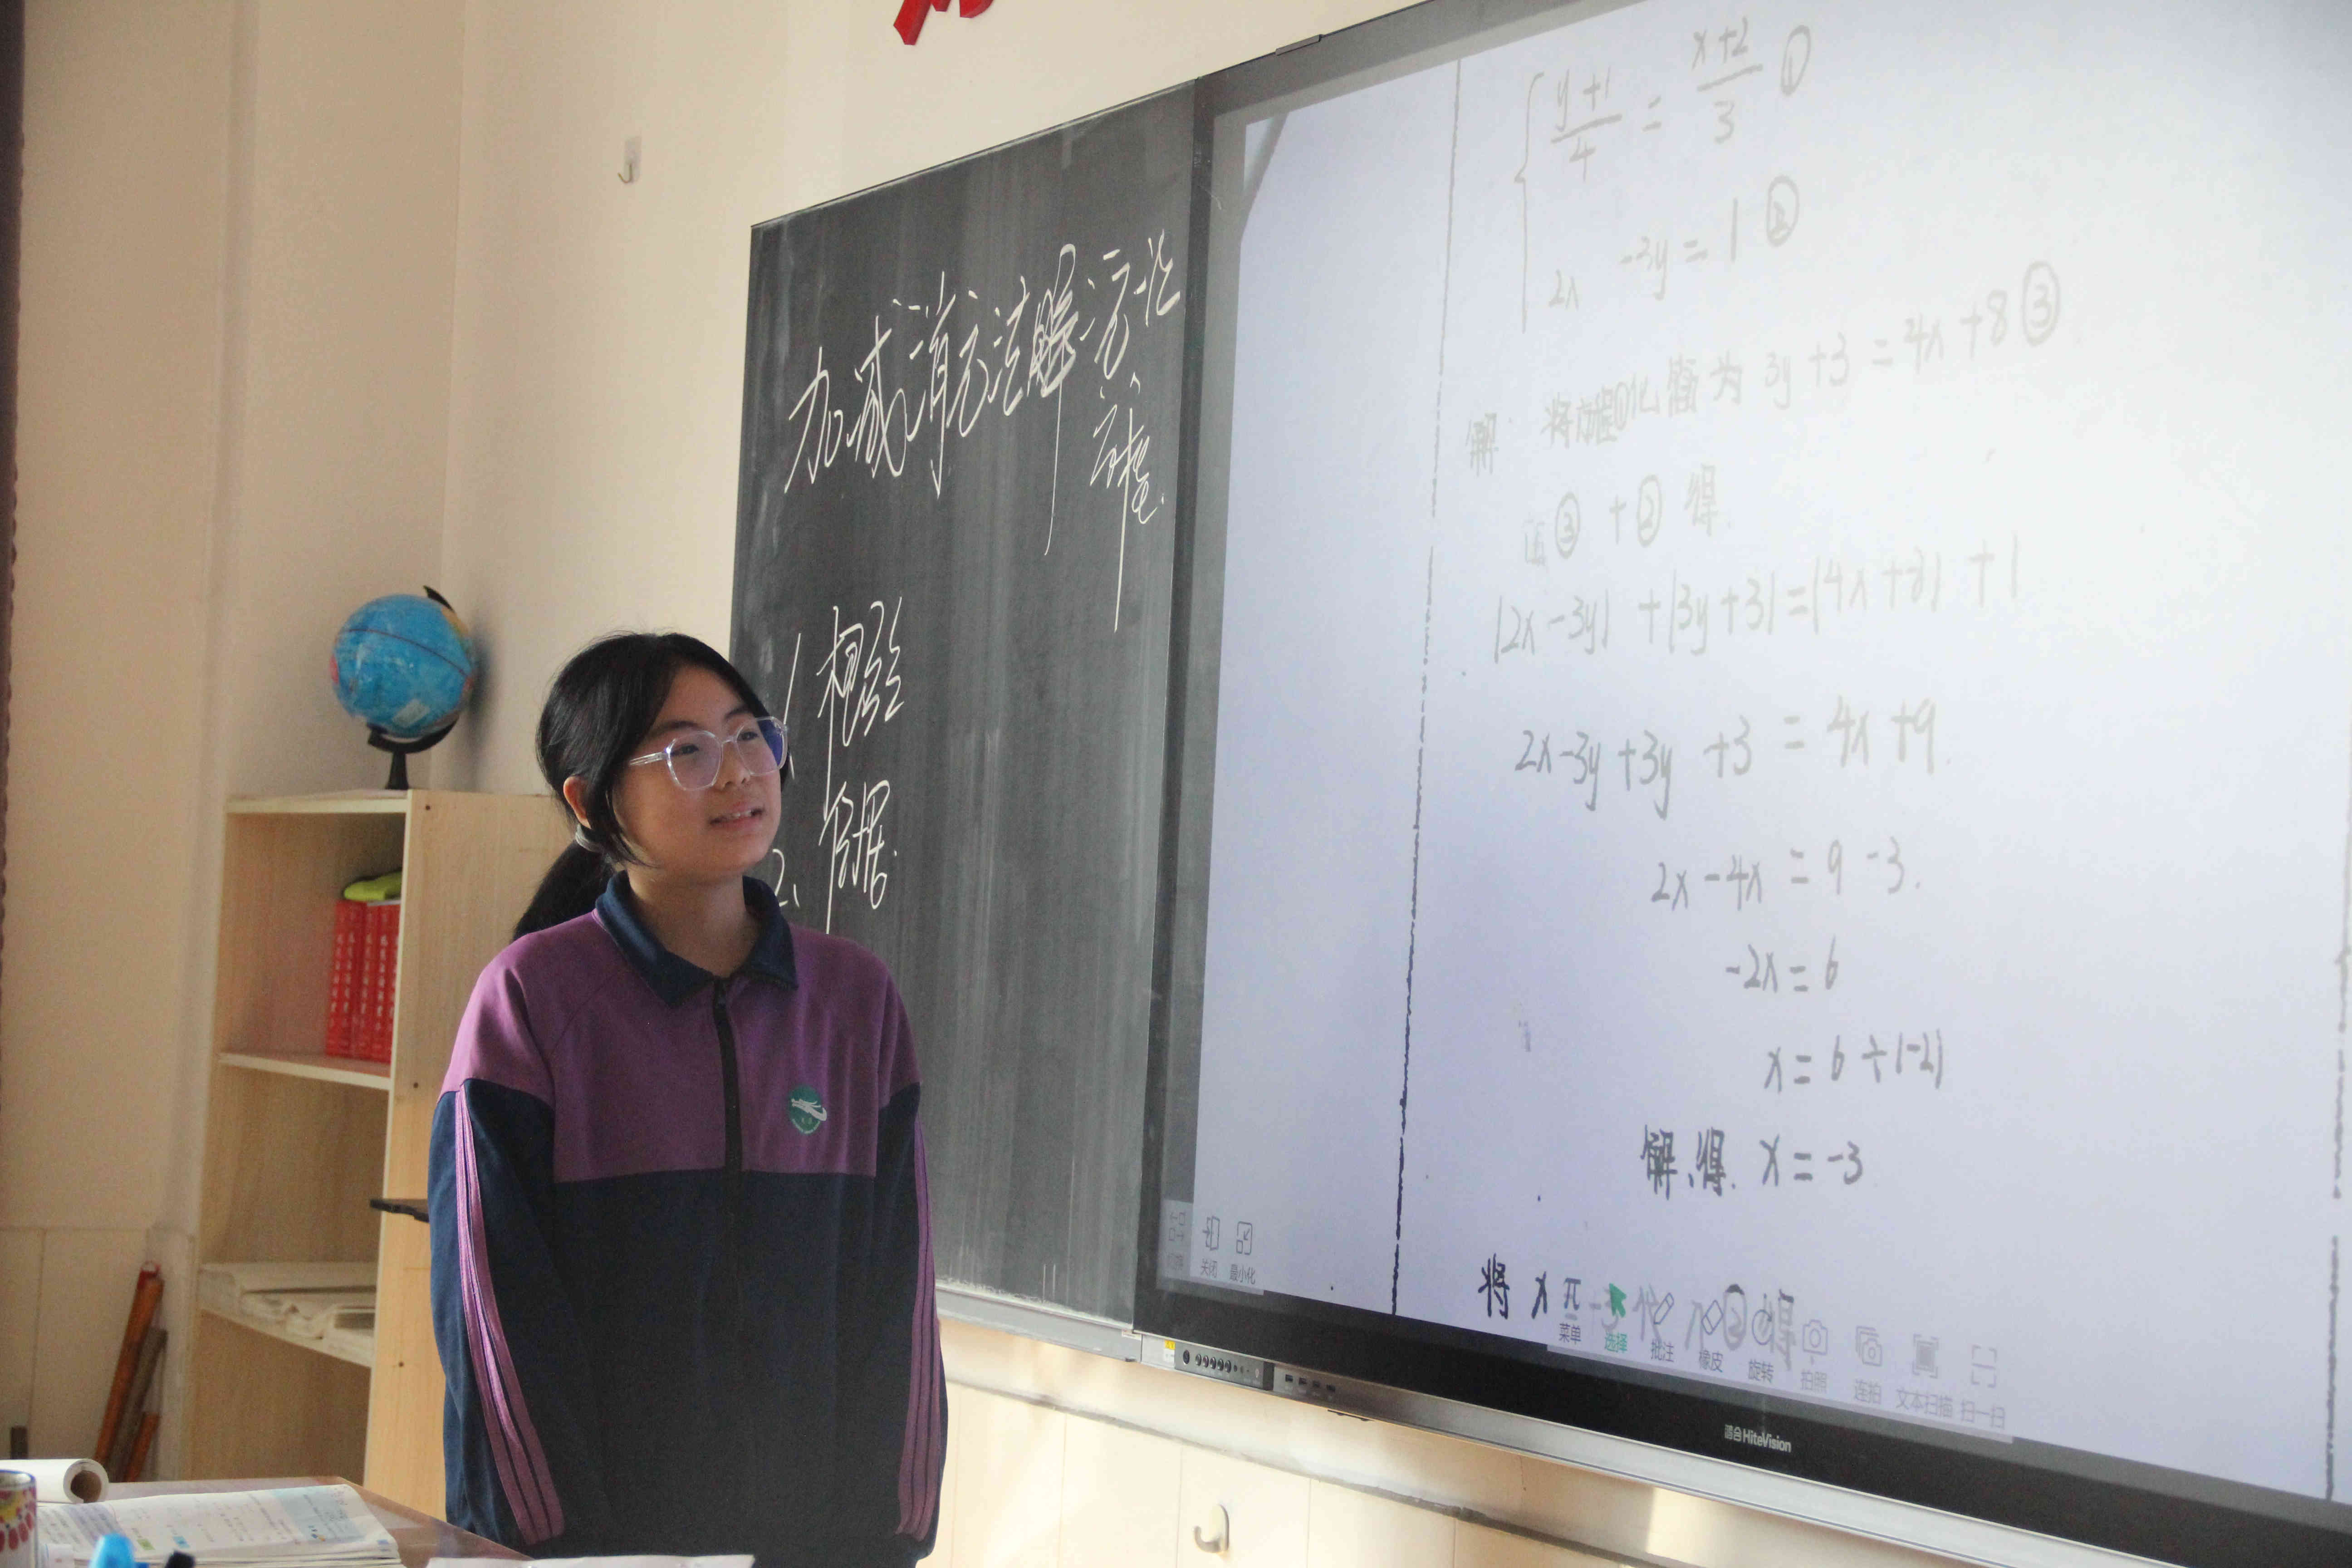 加减消元法解二元一次
方程.
1、概念
2、依据.
y+1/4 = x+2/3 ①
2x -3y = 1 ②
解 将方程①化简为 3y+3 = 4x+8 ③
③ + ② 得.
(2x-3y) + (3y+3) = (4x+8) + 1
2x-3y+3y +3 = 4x+9.
2x-4x = 9 -3.
-2x = 6
x = 6 ÷ (-2)
解,得. x = -3
将 x = -3 代入 ② 得
关闭 最小化
菜单 选择 批注 橡皮 旋转 拍照 连拍 文本扫描 扫一扫
鸿合HiteVision